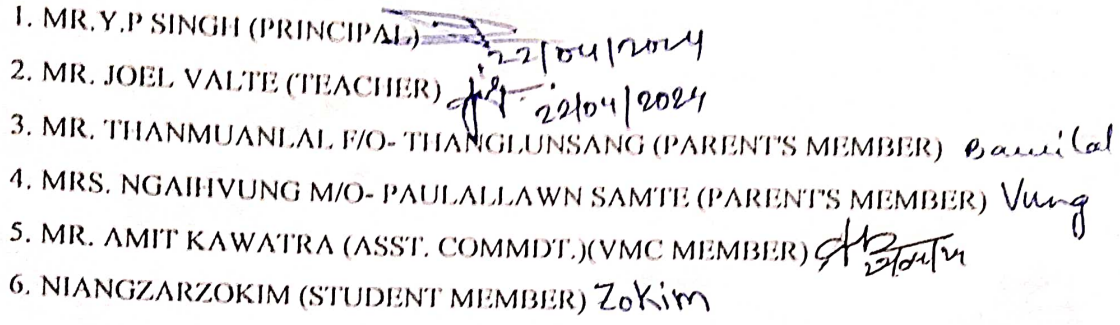 1. MR.Y.P SINGH (PRINCIPAL) 22/04/2024
2. MR. JOEL VALTE (TEACHER) 22/04/2024
3. MR. THANMUANLAL F/O- THANGLUNSANG (PARENT'S MEMBER)
4. MRS. NGAIHVUNG M/O- PAULALLAWN SAMTE (PARENT'S MEMBER) Vung
5. MR. AMIT KAWATRA (ASST. COMMDT.)(VMC MEMBER) 22/04/24
6. NIANGZARZOKIM (STUDENT MEMBER) Zokim